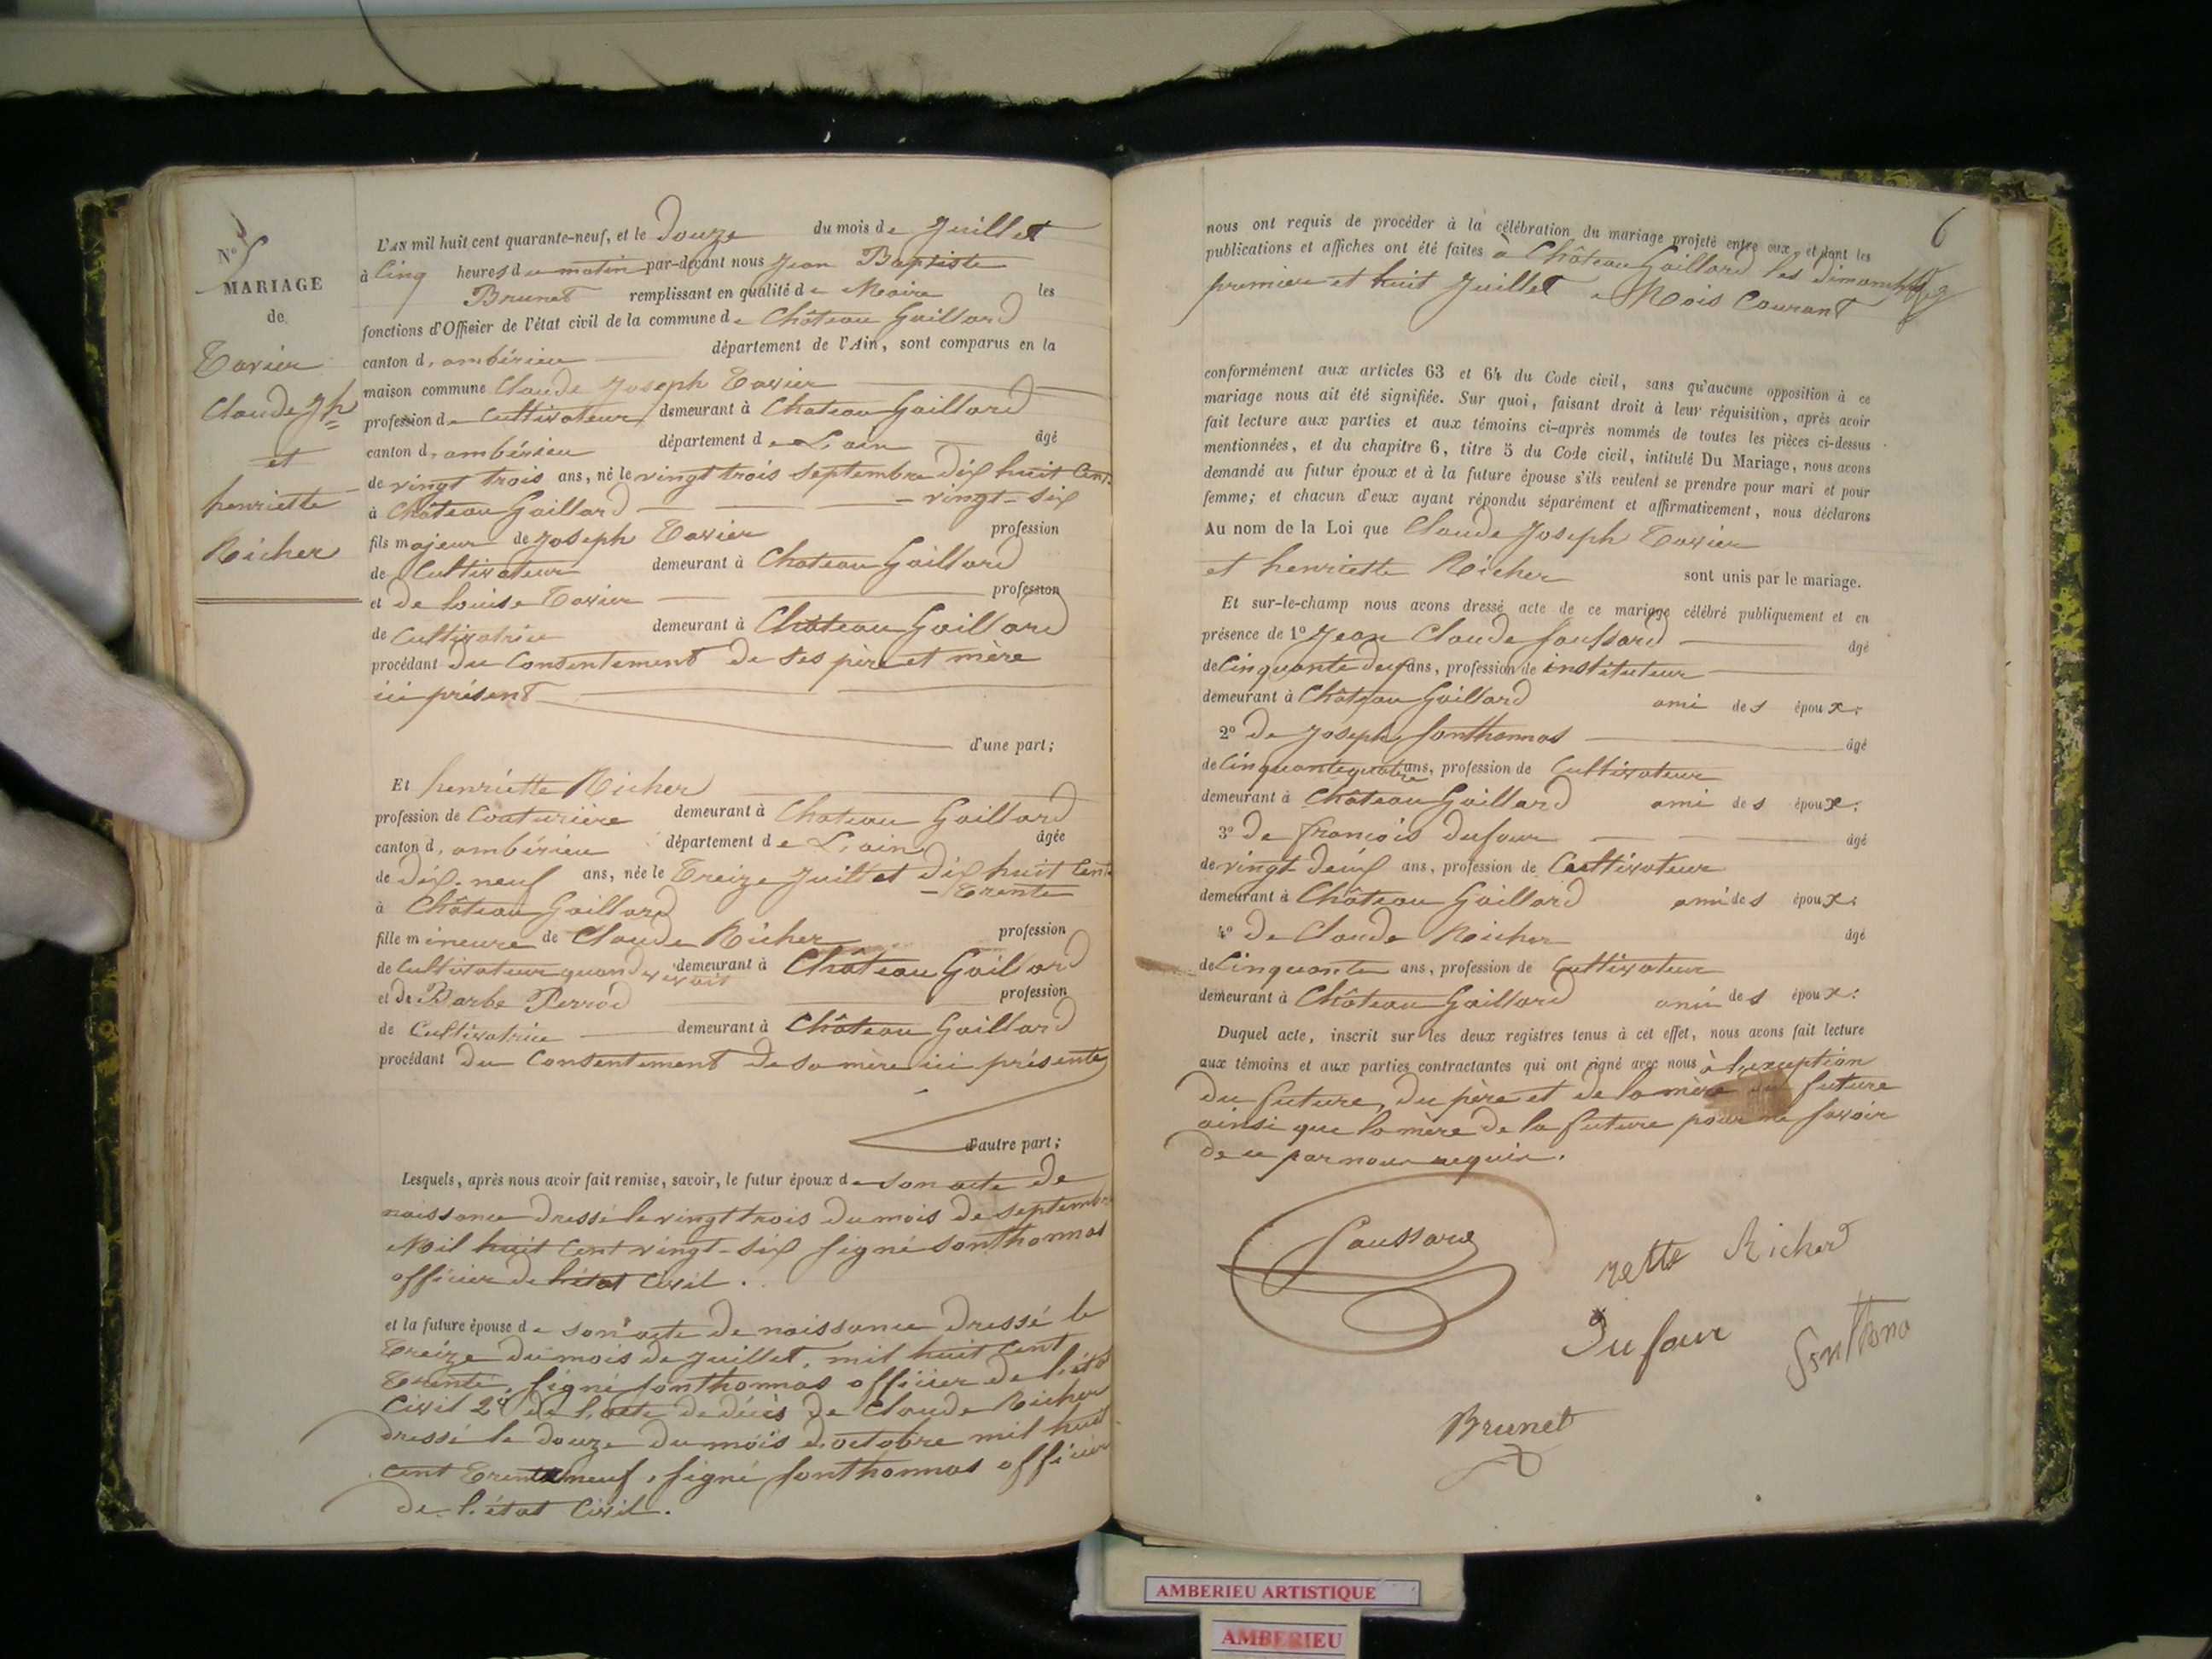 N° 5
MARIAGE
de
Tavier
Claude Jph
et
henriette
Richer
L'AN mil huit cent quarante-neuf, et le Douze du mois de Juillet
à Cinq heures du matin par-devant nous Jean Baptiste
Brunet remplissant en qualité de Maire les
fonctions d'Officier de l'état civil de la commune de Château Gaillard
canton d'ambérieu département de l'Ain, sont comparus en la
maison commune Claude Joseph Tavier
profession de Cultivateur demeurant à Chateau Gaillard
canton d'ambérieu département de L'ain âgé
de vingt trois ans, né le vingt trois septembre dix huit Cent
- vingt-six
à Château Gaillard
fils majeur de Joseph Tavier profession
de Cultivateur demeurant à Chateau Gaillard
et de louise Tavier profession
de Cultivatrice demeurant à Château Gaillard
procédant du Consentement de ses père et mère
ici présent
d'une part;
Et henriette Richer
profession de Couturière demeurant à Chateau Gaillard
canton d'ambérieu département de L'ain âgée
de dix-neuf ans, née le Treize Juillet dix huit Cent
- Trente
à Château Gaillard
fille mineure de Claude Richer profession
de Cultivateur quand vivait demeurant à Château Gaillard
et de Barbe Perrod profession
de Cultivatrice demeurant à Château Gaillard
procédant du Consentement de sa mère ici présente
d'autre part;
Lesquels, après nous avoir fait remise, savoir, le futur époux de son acte de
naissance dressé le vingt trois du mois de septembre
Mil huit Cent vingt-six signé sonthonnas
officier de l'état Civil.
et la future épouse de son acte de naissance dressé le
Treize du mois de Juillet, mil huit Cent
Trente, signé sonthonnas officier de l'état
Civil 2° de l'acte de décès de Claude Richer
dressé le douze du mois d'octobre mil huit
cent Trente neuf, signé sonthonnas officier
de l'état Civil.
6
nous ont requis de procéder à la célébration du mariage projeté entre eux, et dont les
publications et affiches ont été faites à Château Gaillard les dimanches
premier et huit Juillet Mois Courant
conformément aux articles 63 et 64 du Code civil, sans qu'aucune opposition à ce
mariage nous ait été signifiée. Sur quoi, faisant droit à leur réquisition, après avoir
fait lecture aux parties et aux témoins ci-après nommés de toutes les pièces ci-dessus
mentionnées, et du chapitre 6, titre 5 du Code civil, intitulé Du Mariage, nous avons
demandé au futur époux et à la future épouse s'ils veulent se prendre pour mari et pour
femme; et chacun d'eux ayant répondu séparément et affirmativement, nous déclarons
Au nom de la Loi que Claude Joseph Tavier
et henriette Richer sont unis par le mariage.
Et sur-le-champ nous avons dressé acte de ce mariage célébré publiquement et en
présence de 1° Jean Claude saussard âgé
de Cinquante deux ans, profession de instituteur
demeurant à Château Gaillard ami des époux;
2° de Joseph sonthonnas âgé
de Cinquante quatre ans, profession de Cultivateur
demeurant à Château Gaillard ami des époux;
3° de françois dufour âgé
de vingt-deux ans, profession de Cultivateur
demeurant à Château Gaillard ami des époux;
4° de Claude Richer âgé
de Cinquante ans, profession de Cultivateur
demeurant à Château Gaillard ami des époux:
Duquel acte, inscrit sur les deux registres tenus à cet effet, nous avons fait lecture
aux témoins et aux parties contractantes qui ont signé avec nous à l'exception
du future, du père et de la mère du future
ainsi que la mère de la future pour ne savoir
de ce par nous requis.
Saussard
rette Richerd
Dufour
Sonthona
Brunet
AMBERIEU ARTISTIQUE
AMBERIEU